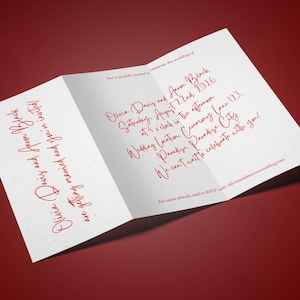 Olivia Davis and Aaron Black
are getting married and you're invited!
You're joyfully invited to celebrate the wedding of
Olivia Davis and Aaron Black
Saturday, August 22nd, 2026
at 4 o'clock in the afternoon
Wedding Location, Ceremony Lane 123,
Paradise, Paradise City
We can't wait to celebrate with you!
For more details and to RSVP visit